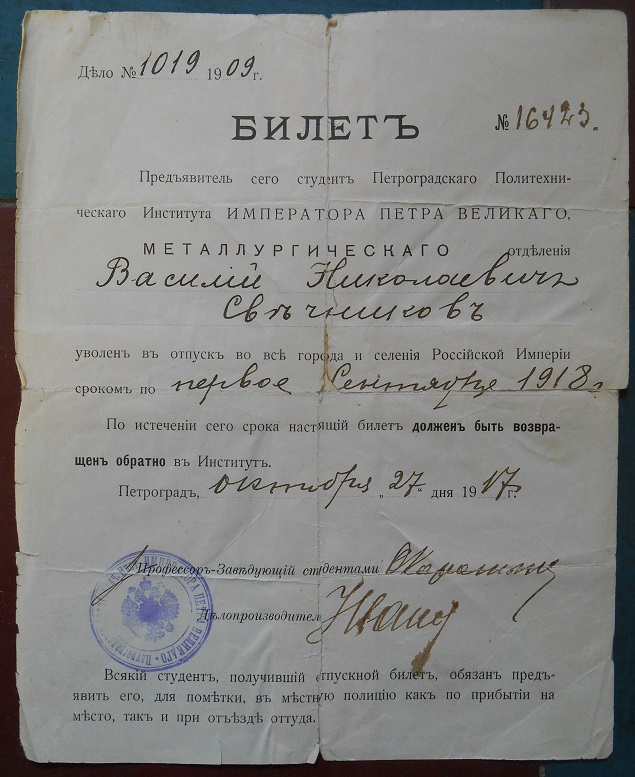 Дѣло № 1019 1909 г.
БИЛЕТЪ
№ 16423.
Предъявитель сего студентъ Петроградскаго Политехни-
ческаго Института ИМПЕРАТОРА ПЕТРА ВЕЛИКАГО,
МЕТАЛЛУРГИЧЕСКАГО отдѣленія
Василій Николаевичъ
Свѣчниковъ
уволенъ въ отпускъ во всѣ города и селенія Россійской Имперіи
срокомъ по первое Сентября 1918 г
По истеченіи сего срока настоящій билетъ долженъ быть возвра-
щенъ обратно въ Институтъ.
Петроградъ, октября „27“ дня 1917 г.
Профессоръ-Завѣдующій студентами
Дѣлопроизводитель
ИМПЕРАТОРА ПЕТРА ВЕЛИКАГО
Всякій студентъ, получившій отпускной билетъ, обязанъ предъ-
явить его, для помѣтки, въ мѣстную полицію какъ по прибытіи на
мѣсто, такъ и при отъѣздѣ оттуда.